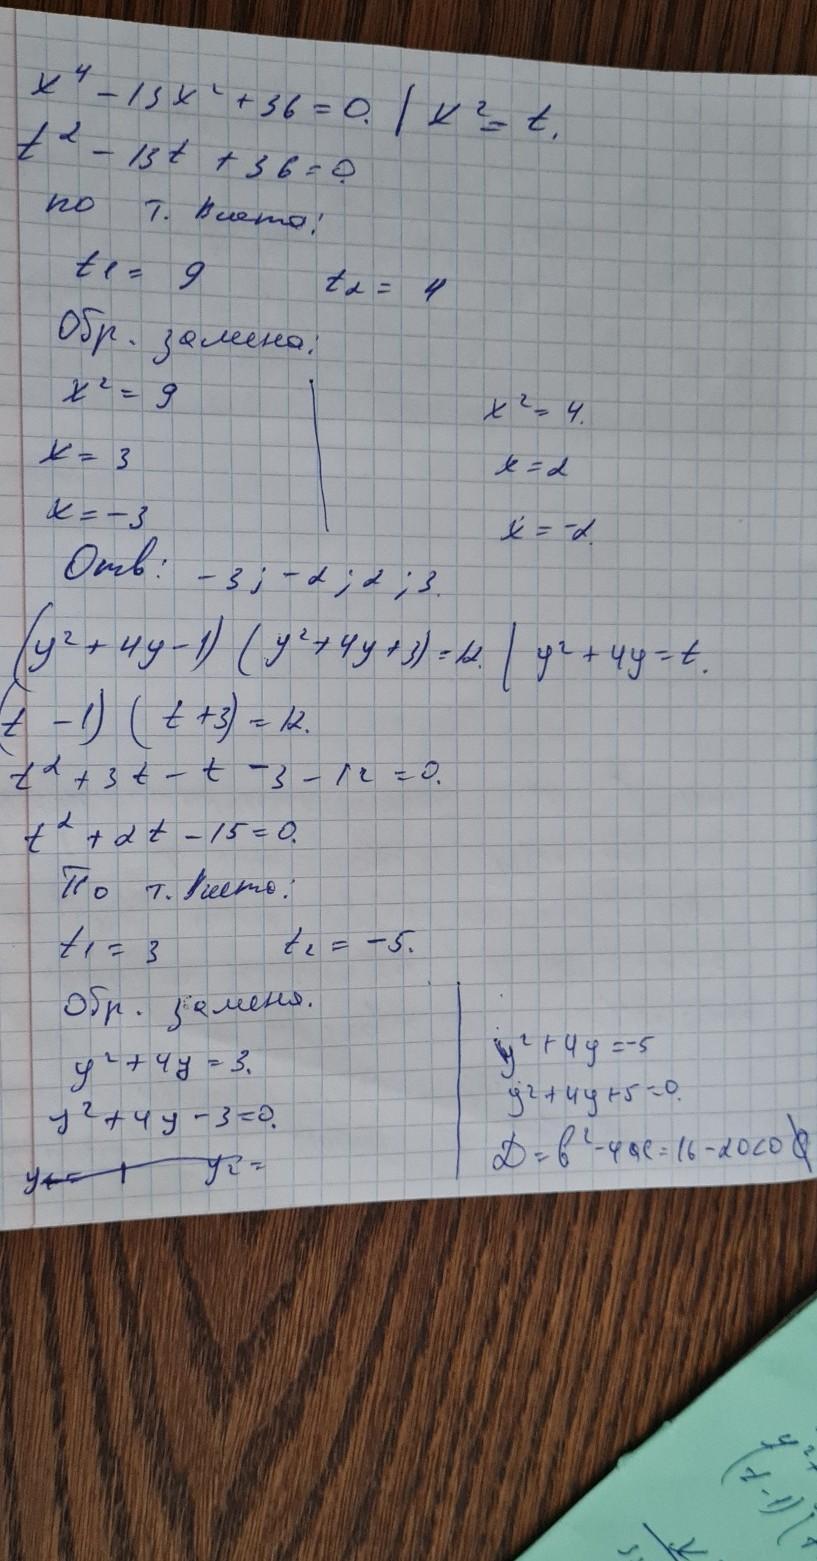 x⁴ - 13x² + 36 = 0. | x² = t.
t² - 13t + 36 = 0
по т. Виета:
t₁ = 9 t₂ = 4
Обр. замена:
x² = 9 x² = 4.
x = 3 x = 2
x = -3 x = -2.
Отв: -3; -2; 2; 3.
(y² + 4y - 1) (y² + 4y + 3) = 12. | y² + 4y = t.
(t - 1) (t + 3) = 12.
t² + 3t - t - 3 - 12 = 0.
t² + 2t - 15 = 0.
По т. Виета:
t₁ = 3 t₂ = -5.
Обр. замена.
y² + 4y = 3.
y² + 4y - 3 = 0.
y₁ = y₂ =
y² + 4y = -5
y² + 4y + 5 = 0.
D = b² - 4ac = 16 - 20 < 0
y²+
(t-1)(